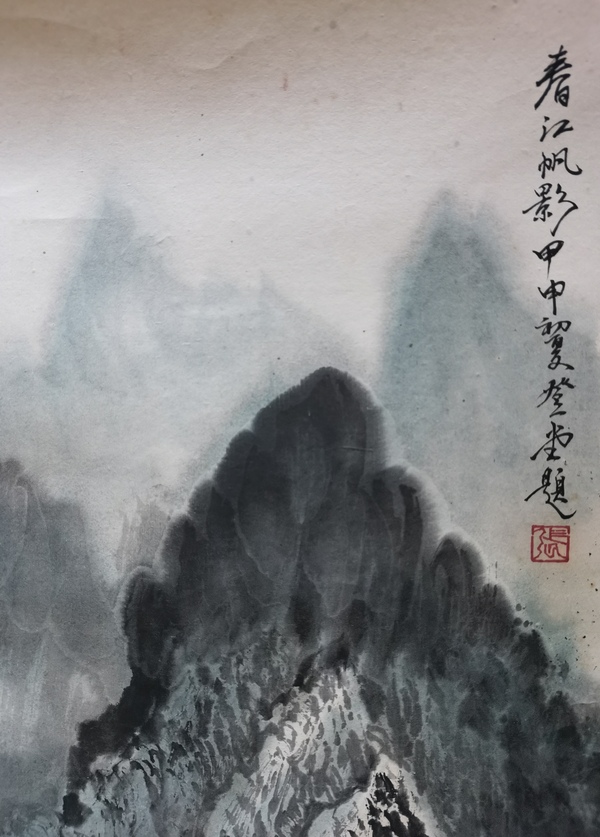 春江帆影甲申初夏登堂題
張